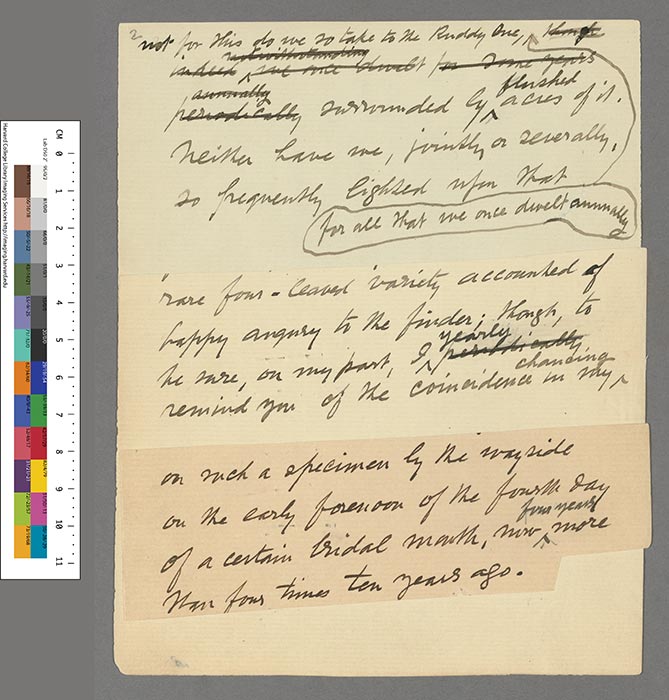 2
not for this do we so take to the Ruddy One, though
notwithstanding
indeed we once dwelt for some years
annually flushed
periodically surrounded by acres of it.
Neither have we, jointly or severally,
so frequently lighted upon that
for all that we once dwelt annually
rare four-leaved variety accounted of
happy augury to the finder; though, to
yearly
be sure, on my part, I periodically
chancing
remind you of the coincidence in my
on such a specimen by the wayside
on the early forenoon of the fourth day
four years
of a certain bridal month, now more
than four times ten years ago.
CM 0 1 2 3 4 5 6 7 8 9 10 11
Harvard College Library Imaging Services http://imaging.harvard.edu